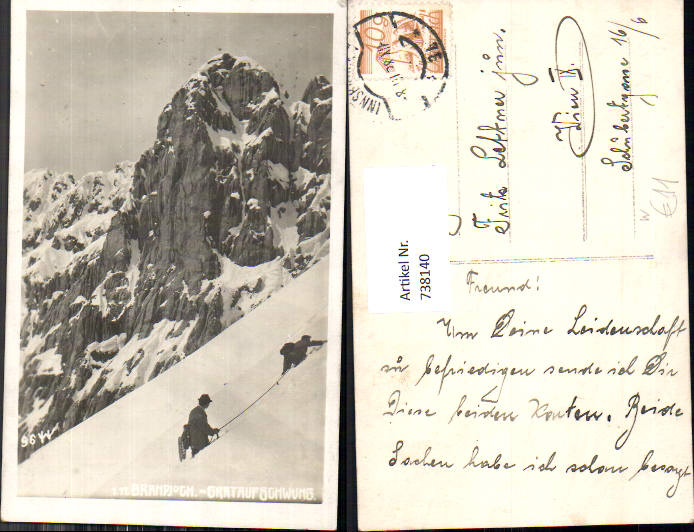 96W
BRANDJOCH. - GRATAUFSCHWUNG.
10g
Fritz Lettner jun.
Wien IX.
Schubertgasse 16/6
W
€11
Artikel Nr.
738140
Freund!
Um Deine Leidenschaft
zu befriedigen sende ich Dir
Diese beiden Karten. Beide
Sachen habe ich schon besorgt